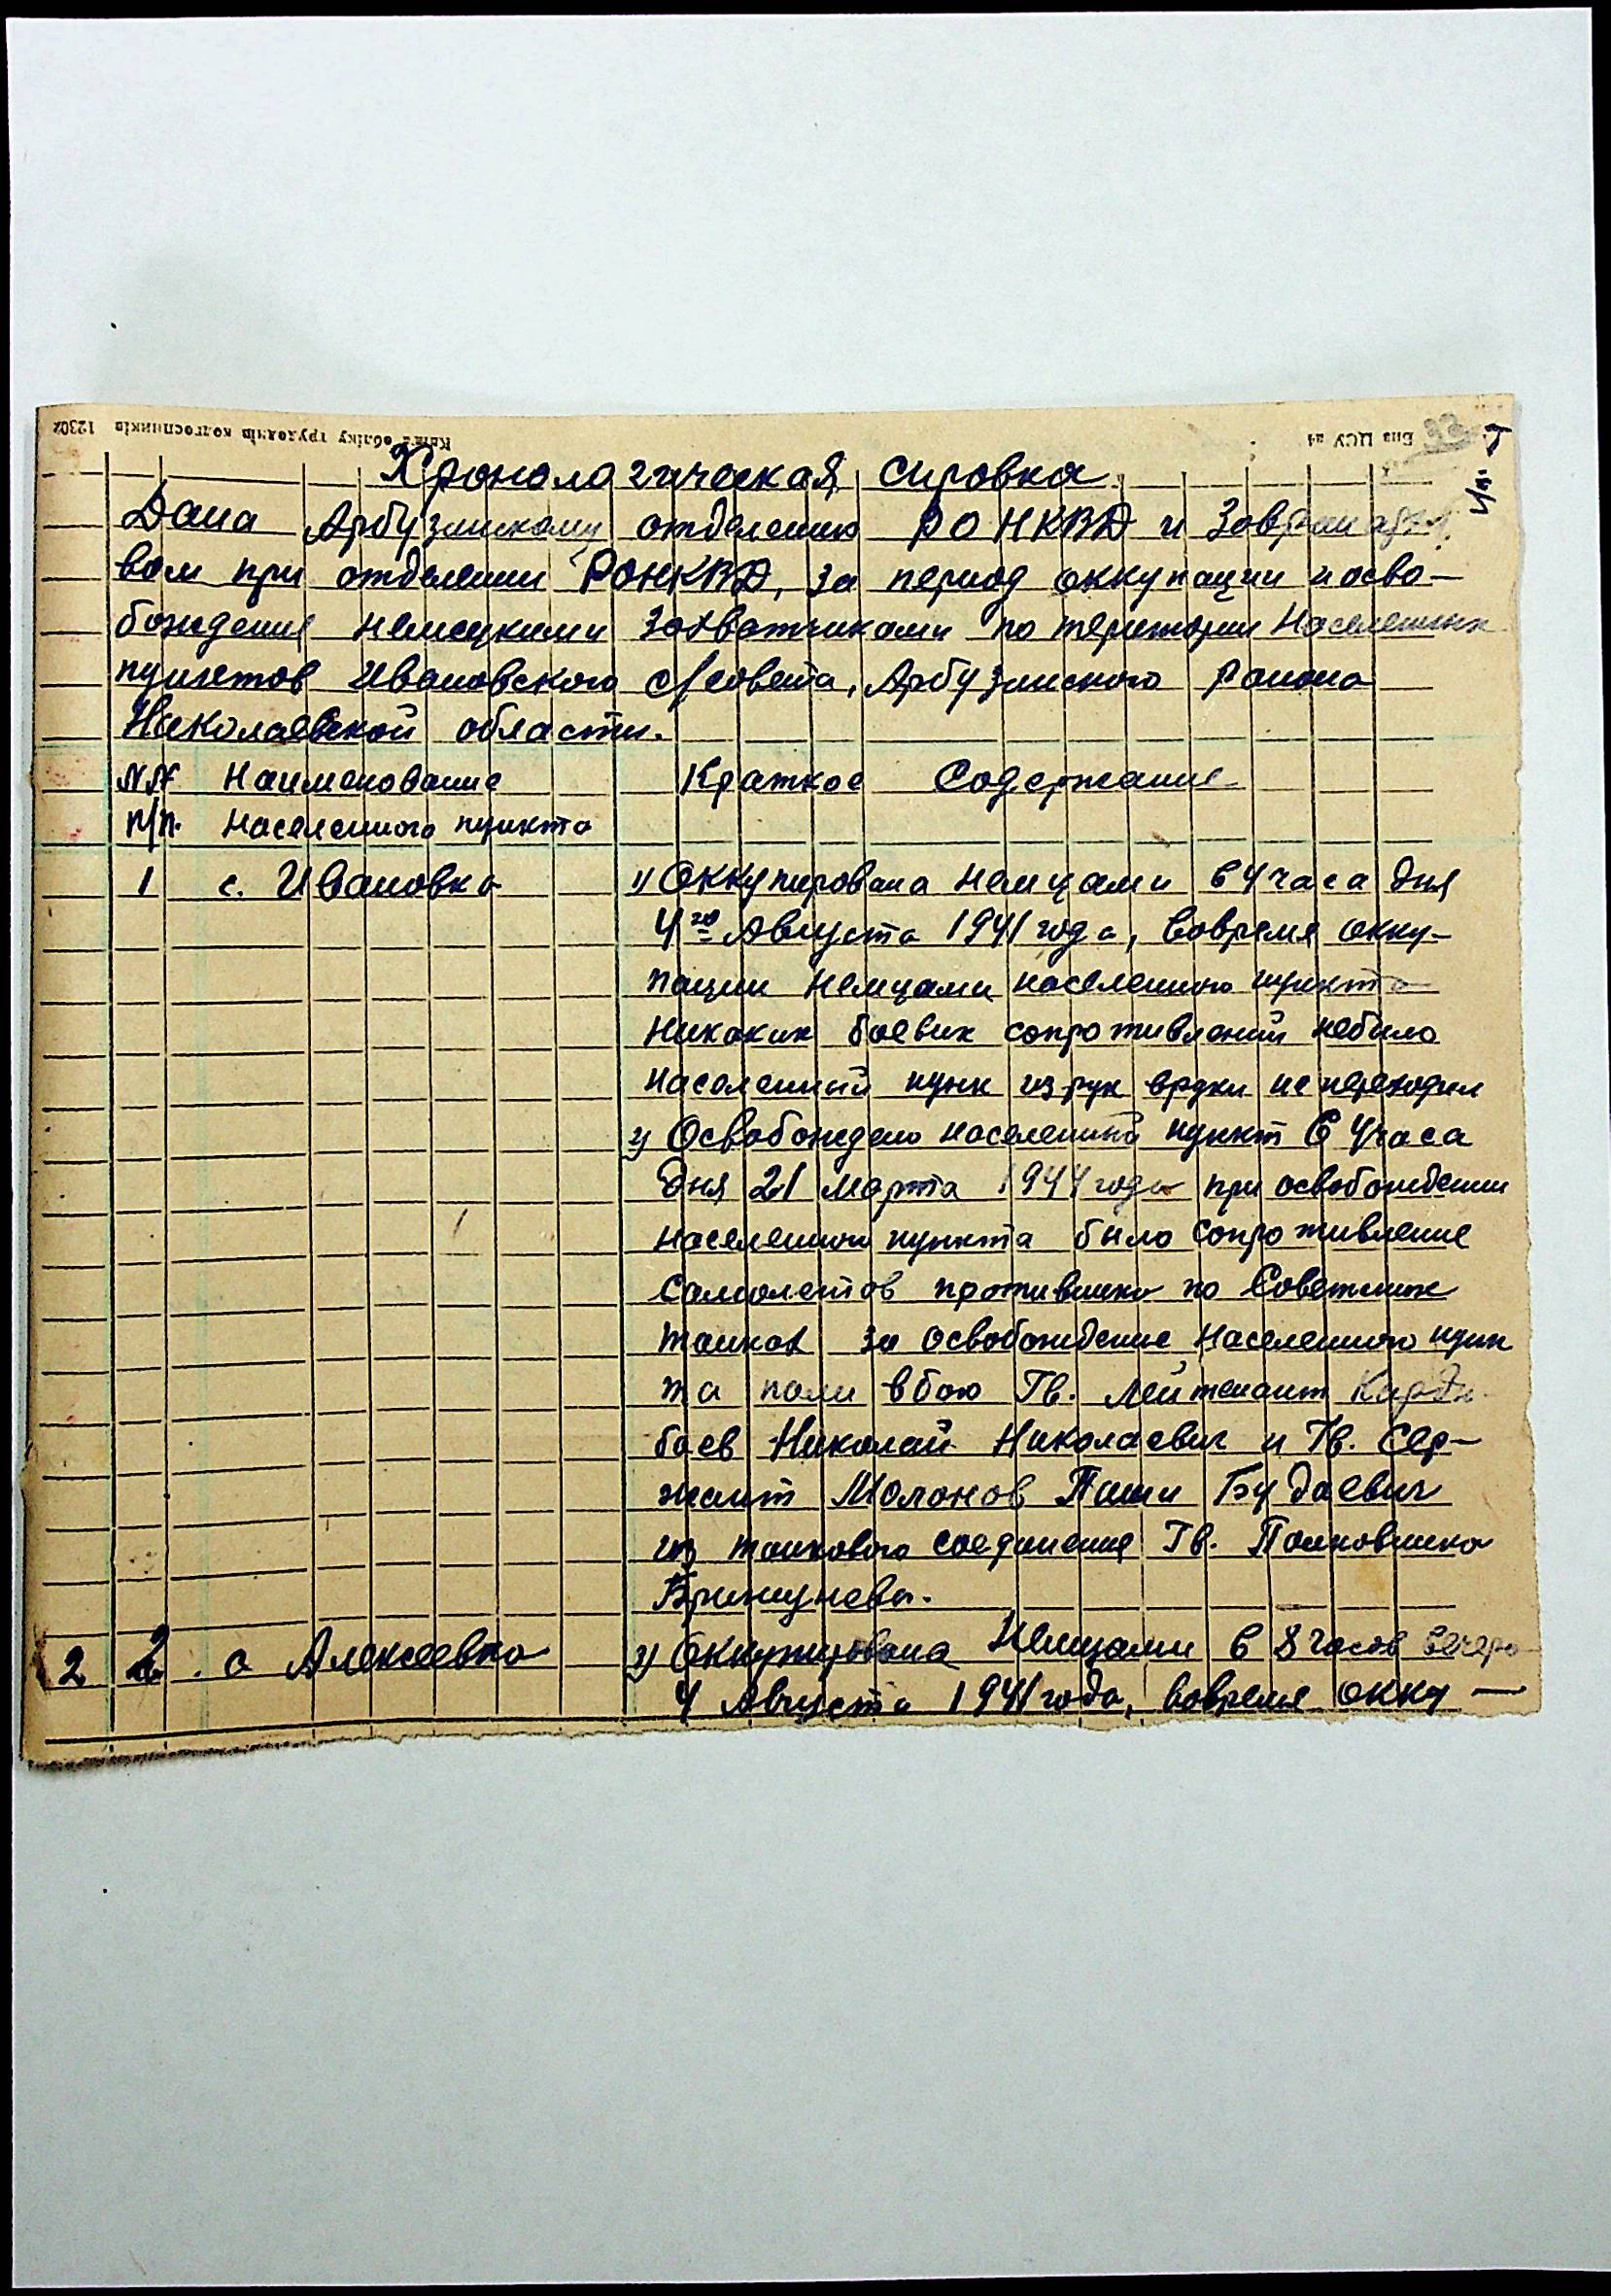 Книга обліку трудоднів колгоспників 12302
Вид ЦСУ
Хронологическая справка
Дана Арбузинскому отделению РО НКВД и
вом при отделении РОНКВД, за период оккупации и осво-
бождения немецкими захватчиками по територии Населенних
пунктов Ивановского с/совета, Арбузинского Района
Николаевской области.
NN Наименование Краткое Содержание
п/п. Населенного пункта
1 с. Ивановка 1) Оккупирована немцами в 4 часа дня
4го Августа 1941 года, вовремя окку-
пации немцами населенного пункта
никаких боевих сопротивлений небило
населенний пунк из рук вруки не переходил
2) Освобождено населенний пункт в 4 часа
дня 21 Марта 1944 года при освобождении
населенного пункта было сопротивление
Самолетов противника по Советских
танках за освобождение Населенного пунк
та пали в бою Гв. Лейтенант
баев Николай Николаевич и Гв. Сер-
жант Молонов Паши Будаевич
из танкового соединения Гв. Полковника
2 2. с Алексеевка Оккупирована Немцами в 8 часов вечера
4 Августа 1941 года, вовремя окку —